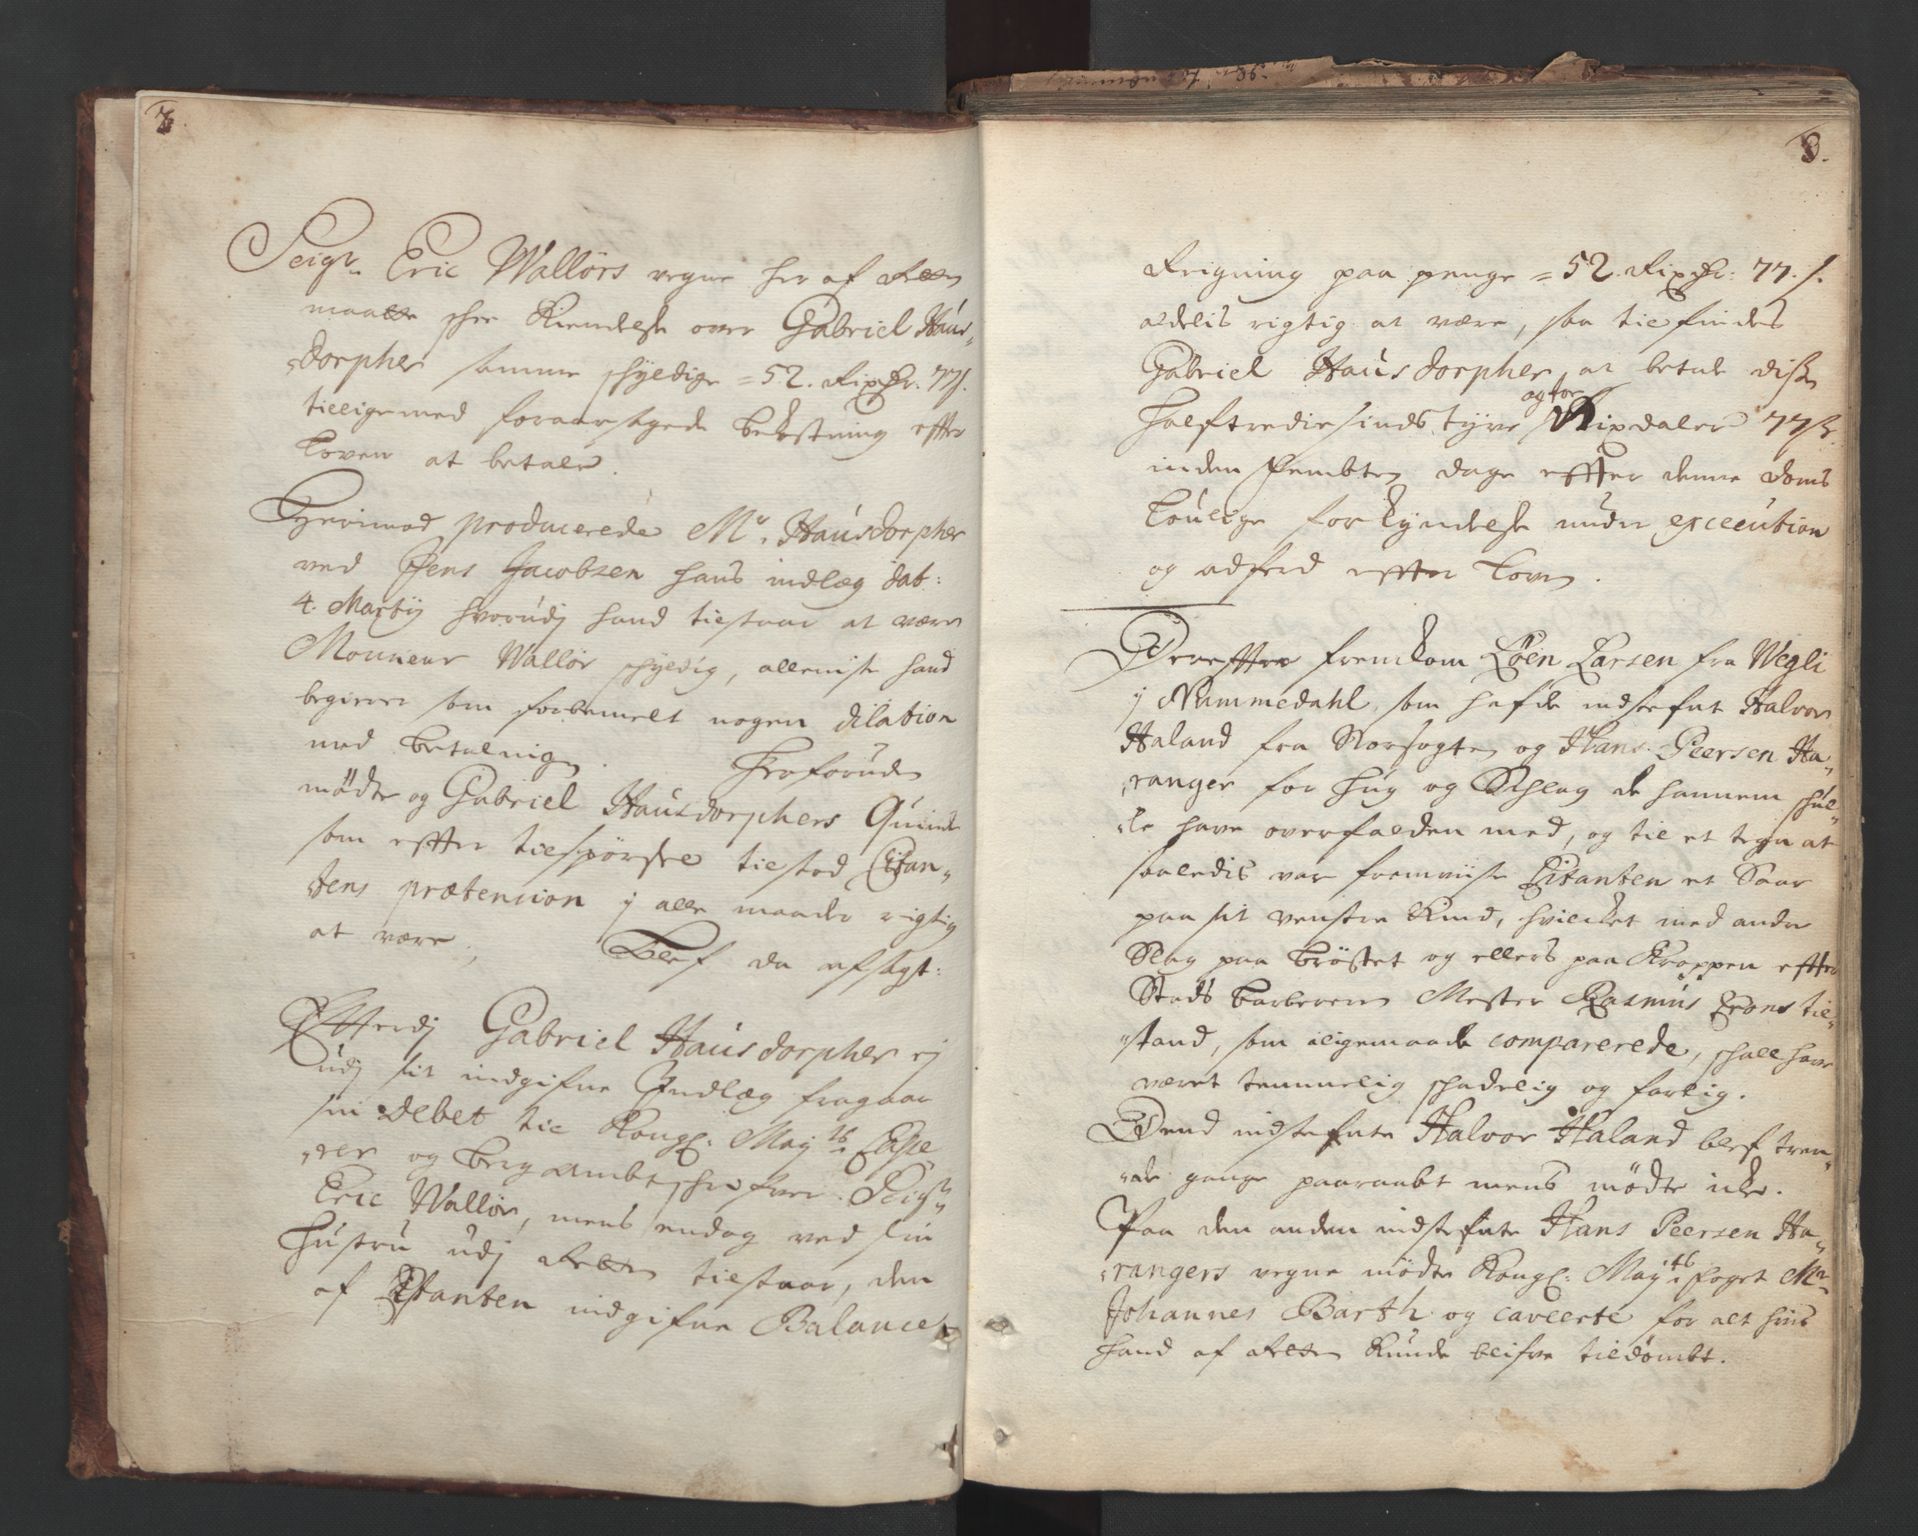 7.
Seigr. Eric Wallørs vegne her af Retten
maatte skee Kiendelse over Gabriel Haus-
dorpher samme skyldige = 52. Rixdr. 77 s.
tilligemed foraarsagede bekostning efter
Loven at betale.
Herimod producerede Mr. Hausdorpher
ved Jens Jacobsen hans indlæg dat:
4. Martij hvorudj hand tilstaar at være
Monsieur Wallør skyldig, alleniste hand
begierer som forbemelt nogen dilation
med betalning. Herforuden
mødte og Gabriel Hausdorphers Quinde
som efter tilspørsel tilstod Citan-
tens prætension j alle maader rigtig
at være, Blef da afsagt:
Efterdj Gabriel Hausdorpher ej
udj sit indgifne Indlæg fragaar
sin Debet til Kongl: Mayts
-rer og bergambtskrifver Seigr.
Eric Wallør, mens endog ved sin
Hustru udj Retten tilstaar, den
af Citanten indgifne Balance
8.
Reigning paa penge = 52. Rixdr: 77. s.
aldelis rigtig at være, saa tilfindes
Gabriel Hausdorpher, at betale disse
halftrediesindstyve og toe Rixdaler 77 s.
inden fembten dage efter denne Doms
Loulige forkyndelse under execution
og adferd efter Loven.
Derefter fremkom Løen Larsen fra Wegli
j Nummedahl, som hafde indstefnt Halvor
Haland fra Norfogten og Hans Peersen Ha-
-ranger for hug og Schlag de hannem skul-
-le have overfalden med, og til et tegn at
saaledis var fremviiste Citanten et Saar
paa sit venstre Kind, hvilcket med andre
Slag paa brøstet og ellers paa Kroppen efter
Stads barberen Mester Rasmus Crons til-
-stand, som iligemaade comparerede, skall have
været temmelig skadelig og farlig.
Dend indstefnte Halvor Haland blef tren-
-de gange paaraabt mens mødte icke.
Paa den anden indstefnte Hans Peersen Ha-
-rangers vegne mødte Kongl: Mayts foget Mr
Johannes Barth og caveerte for alt hvis
hand af Retten Kunde blifve tildømbt.